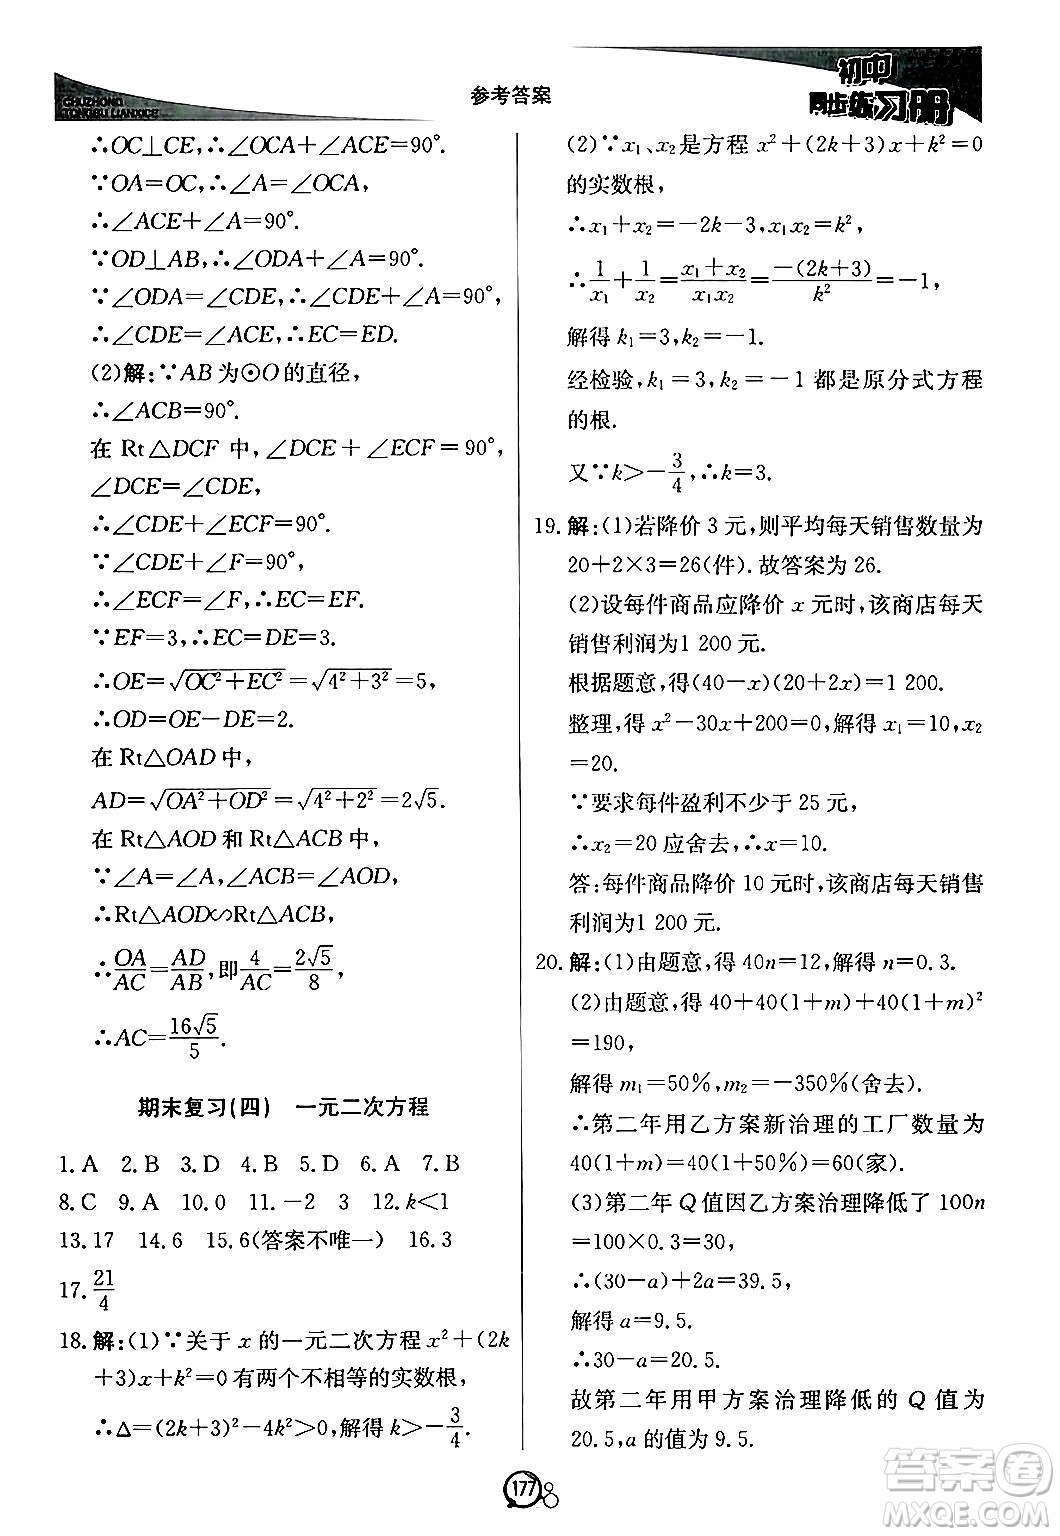 CHUZHONG
TONGBU LIANXICE
参考答案
初中
同步练习册
∴OC⊥CE,∴∠OCA+∠ACE=90°.
∵OA=OC,∴∠A=∠OCA,
∴∠ACE+∠A=90°.
∵OD⊥AB,∴∠ODA+∠A=90°.
∵∠ODA=∠CDE,∴∠CDE+∠A=90°,
∴∠CDE=∠ACE,∴EC=ED.
(2)解:∵AB为⊙O的直径,
∴∠ACB=90°.
在 Rt△DCF 中,∠DCE+∠ECF=90°,
∠DCE=∠CDE,
∴∠CDE+∠ECF=90°.
∵∠CDE+∠F=90°,
∴∠ECF=∠F,∴EC=EF.
∵EF=3,∴EC=DE=3.
∴OE=√(OC²+EC²)=√(4²+3²)=5,
∴OD=OE-DE=2.
在 Rt△OAD中,
AD=√(OA²+OD²)=√(4²+2²)=2√5.
在 Rt△AOD 和 Rt△ACB中,
∵∠A=∠A,∠ACB=∠AOD,
∴Rt△AOD∽Rt△ACB,
∴OA/AC=AD/AB,即4/AC=2√5/8,
∴AC=16√5/5.
期末复习(四) 一元二次方程
1.A 2.B 3.D 4.B 5.D 6.A 7.B
8.C 9.A 10.0 11.-2 3 12.k<1
13.17 14.6 15.6(答案不唯一) 16.3
17.21/4
18.解:(1)∵关于 x 的一元二次方程 x²+(2k
+3)x+k²=0 有两个不相等的实数根,
∴Δ=(2k+3)²-4k²>0,解得 k>-3/4.
(2)∵x₁、x₂是方程 x²+(2k+3)x+k²=0
的实数根,
∴x₁+x₂=-2k-3,x₁x₂=k²,
∴1/x₁+1/x₂=(x₁+x₂)/(x₁x₂)=-(2k+3)/k²=-1,
解得 k₁=3,k₂=-1.
经检验,k₁=3,k₂=-1 都是原分式方程
的根.
又∵k>-3/4,∴k=3.
19.解:(1)若降价 3 元,则平均每天销售数量为
20+2×3=26(件).故答案为 26.
(2)设每件商品应降价 x 元时,该商店每天
销售利润为1 200 元.
根据题意,得(40-x)(20+2x)=1 200.
整理,得 x²-30x+200=0,解得 x₁=10,x₂
=20.
∵要求每件盈利不少于 25 元,
∴x₂=20 应舍去,∴x=10.
答:每件商品降价 10 元时,该商店每天销售
利润为1 200 元.
20.解:(1)由题意,得 40n=12,解得 n=0.3.
(2)由题意,得 40+40(1+m)+40(1+m)²
=190,
解得 m₁=50%,m₂=-350%(舍去).
∴第二年用乙方案新治理的工厂数量为
40(1+m)=40(1+50%)=60(家).
(3)第二年 Q 值因乙方案治理降低了 100n
=100×0.3=30,
∴(30-a)+2a=39.5,
解得 a=9.5.
∴30-a=20.5.
故第二年用甲方案治理降低的 Q 值为
20.5,a 的值为 9.5.
177
答案圈
MXQE.COM